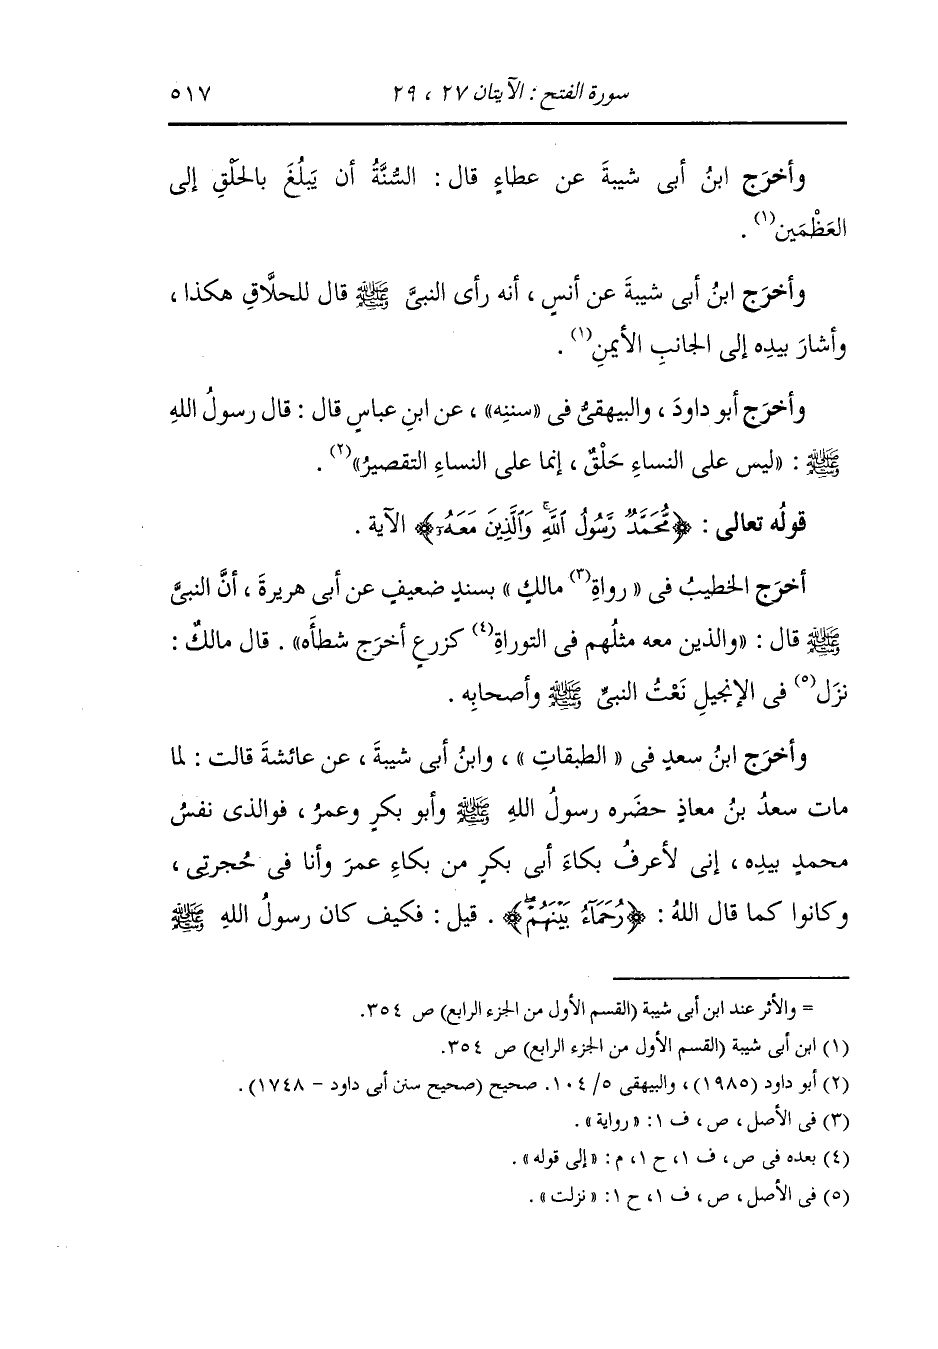 سورة الفتح : الآيتان ٢٧ ، ٢٩ ٥١٧
وأخرَج ابنُ أبى شيبةَ عن عطاءٍ قال : السُّنَّةُ أن يَبلُغَ بالحَلْقِ إلى
العَظْمَين(١) .
وأخرَج ابنُ أبى شيبةَ عن أنسٍ ، أنه رأى النبىَّ ﷺ قال للحلَّاقِ هكذا ،
وأشارَ بيدِه إلى الجانبِ الأيمنِ(١) .
وأخرَج أبو داودَ ، والبيهقىُّ فى «سننِه» ، عن ابنِ عباسٍ قال : قال رسولُ اللهِ
ﷺ : «ليس على النساءِ حَلْقٌ ، إنما على النساءِ التقصيرُ»(٢) .
قولُه تعالى : ﴿مُّحَمَّدٌ رَّسُولُ ٱللَّهِۚ وَٱلَّذِينَ مَعَهُۥٓ﴾ الآية .
أخرَج الخطيبُ فى « رواةِ(٣) مالكٍ » بسندٍ ضعيفٍ عن أبى هريرةَ ، أنَّ النبىَّ
ﷺ قال : «والذين معه مثلُهم فى التوراةِ(٤) كزرعٍ أخرَج شطأَه» . قال مالكٌ :
نزَل(٥) فى الإنجيلِ نَعْتُ النبىِّ ﷺ وأصحابِه .
وأخرَج ابنُ سعدٍ فى « الطبقاتِ » ، وابنُ أبى شيبةَ ، عن عائشةَ قالت : لما
مات سعدُ بنُ معاذٍ حضَره رسولُ اللهِ ﷺ وأبو بكرٍ وعمرُ ، فوالذى نفسُ
محمدٍ بيدِه ، إنى لأعرفُ بكاءَ أبى بكرٍ من بكاءِ عمرَ وأنا فى حُجرتِى ،
وكانوا كما قال اللهُ : ﴿رُحَمَآءُ بَيْنَهُمْۖ﴾ . قيل : فكيف كان رسولُ اللهِ ﷺ
= والأثر عند ابن أبى شيبة (القسم الأول من الجزء الرابع) ص ٣٥٤.
(١) ابن أبى شيبة (القسم الأول من الجزء الرابع) ص ٣٥٤.
(٢) أبو داود (١٩٨٥) ، والبيهقى ٥/ ١٠٤. صحيح (صحيح سنن أبى داود – ١٧٤٨) .
(٣) فى الأصل ، ص ، ف ١: « رواية» .
(٤) بعده فى ص ، ف ١، ح ١، م : «إلى قوله» .
(٥) فى الأصل ، ص ، ف ١، ح ١: « نزلت» .